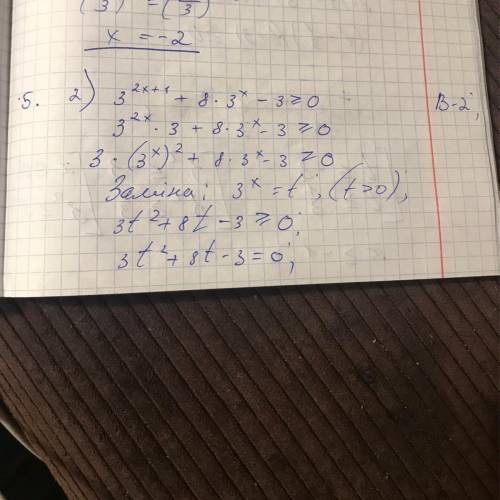 (3) = (3)
x = -2
5. 2) 3^{2x+1} + 8 · 3^x - 3 ≥ 0 B-2;
3^{2x} · 3 + 8 · 3^x - 3 ≥ 0
3 · (3^x)^2 + 8 · 3^x - 3 ≥ 0
Заміна: 3^x = t, (t > 0);
3t^2 + 8t - 3 ≥ 0;
3t^2 + 8t - 3 = 0;